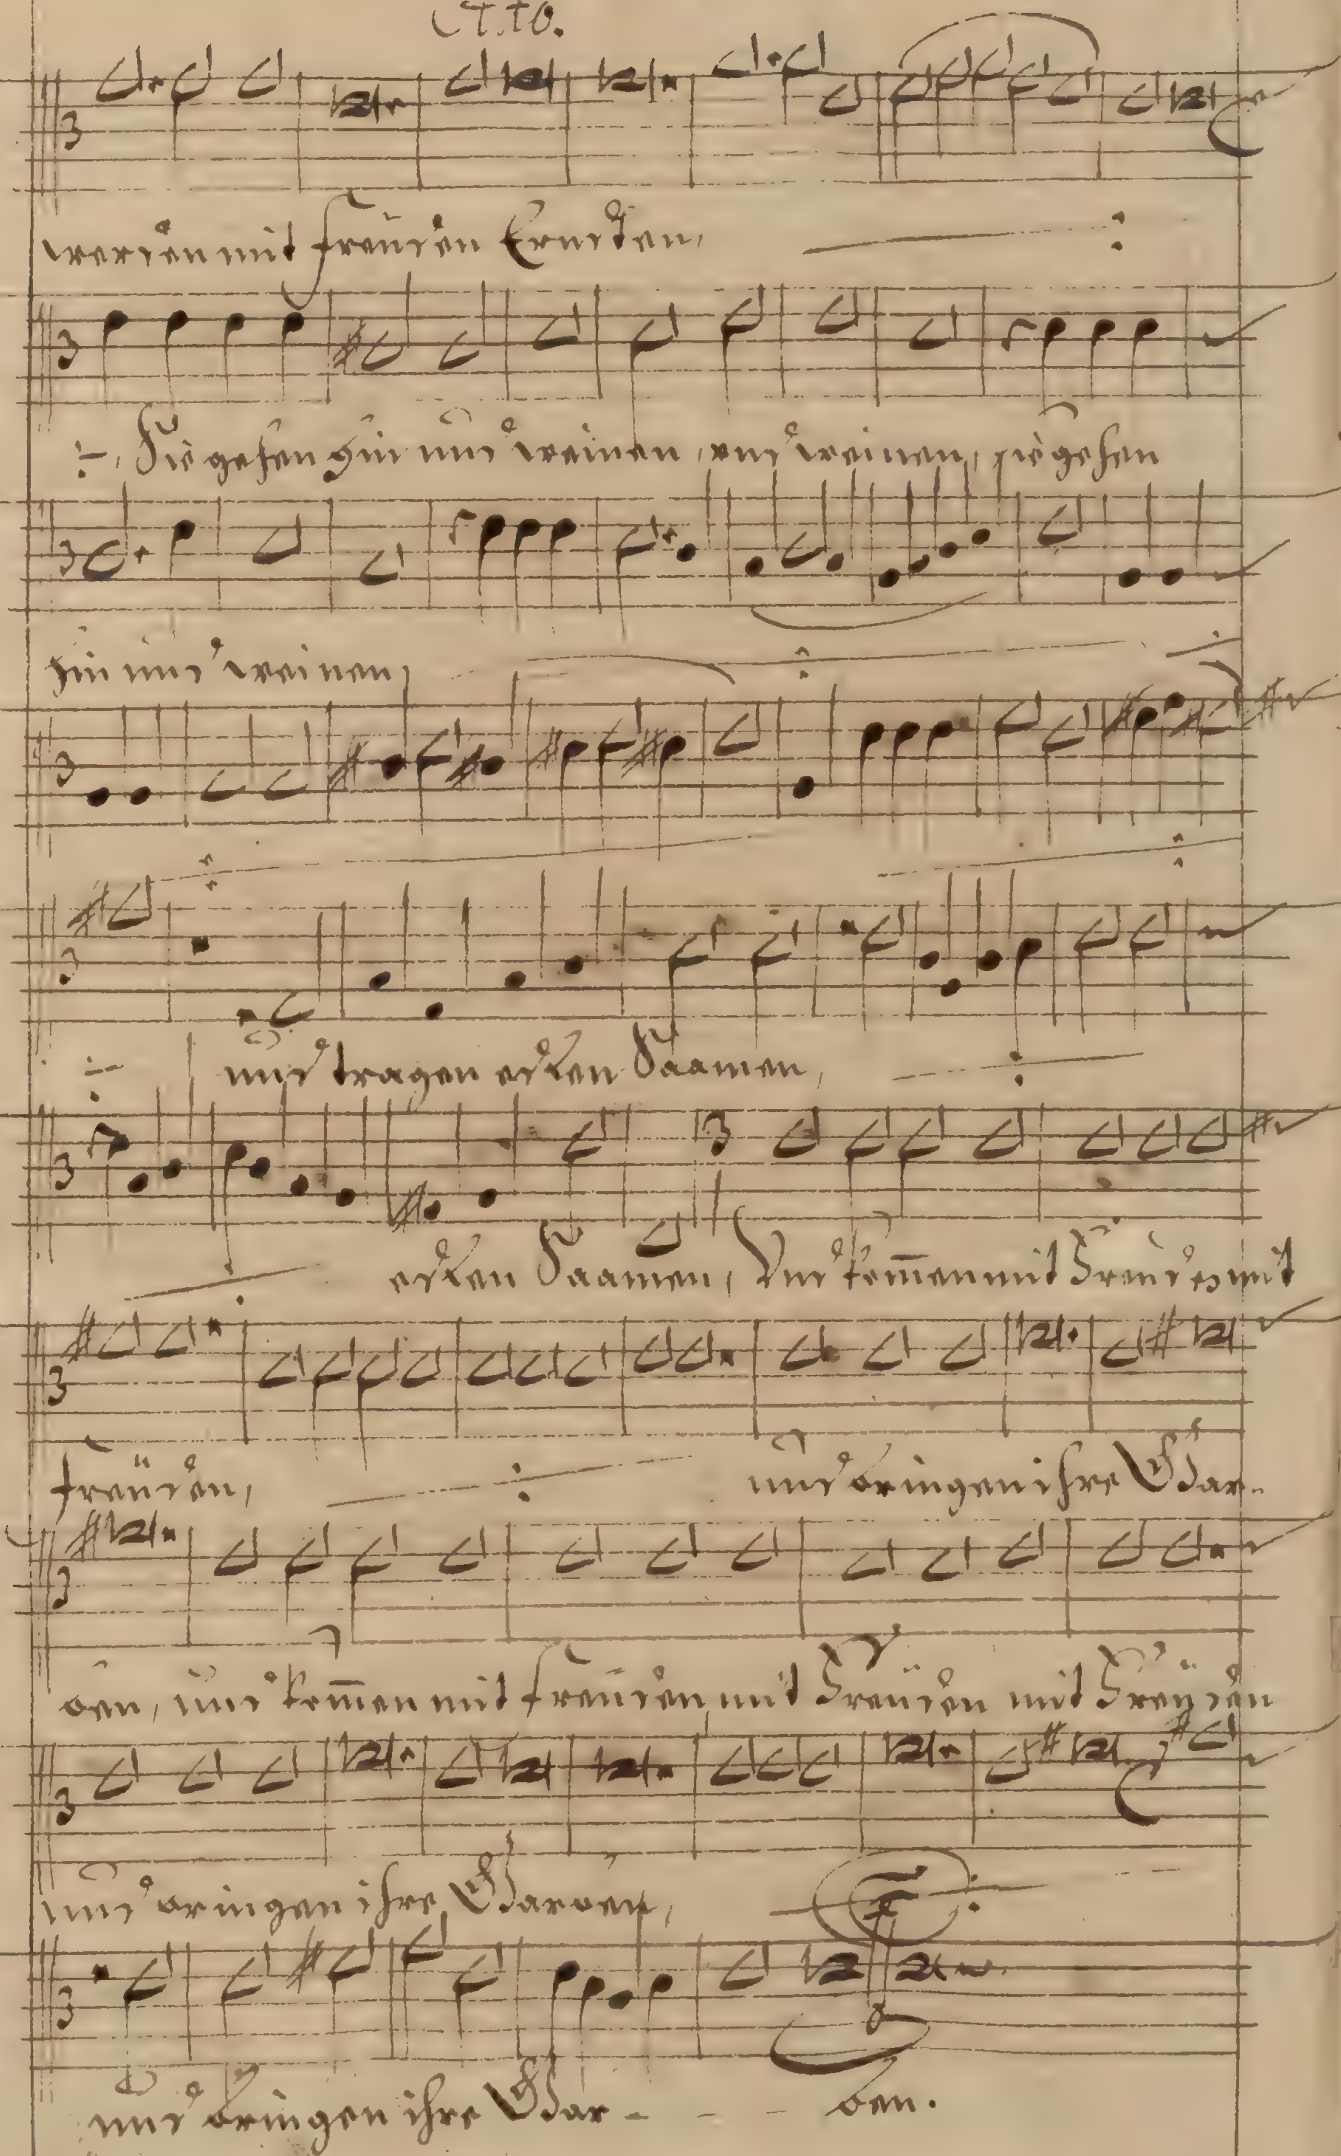 Alto.
werden mit freuden Erndten,
Sie gehen hin und weinen, und weinen, sie gehen
hin und weinen,
und tragen edlen Saamen,
edlen Saamen, Und kom̄en mit Freuden mit
freüden, und bringen ihre Gar-
ben, und kom̄en mit freuden, mit Freüden mit Freÿden
und bringen ihre Garben,
und bringen ihre Gar - - - ben.